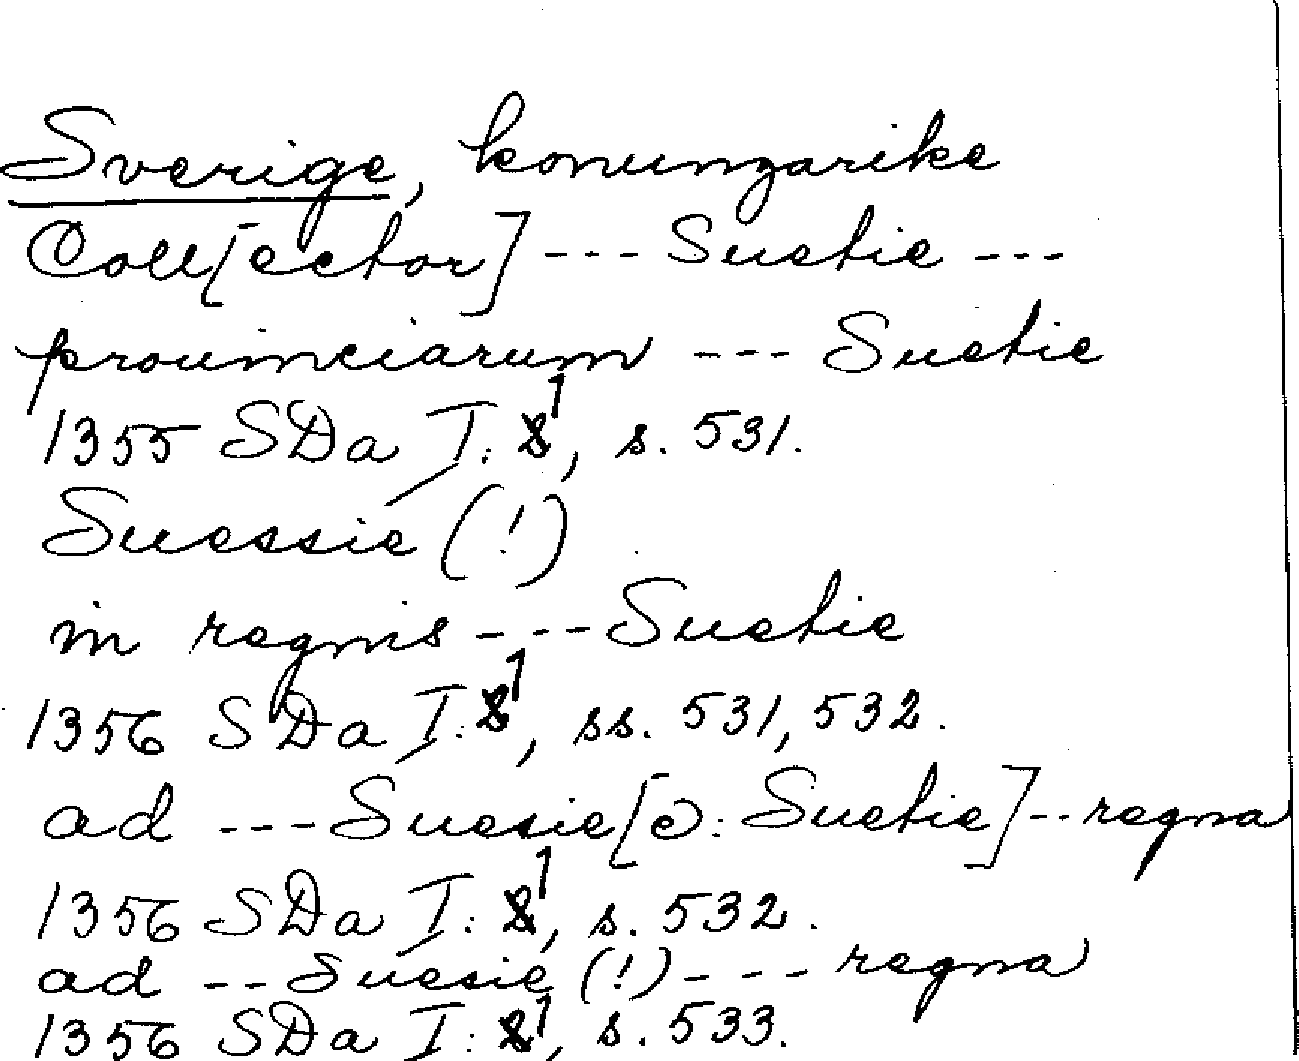 Sverige, konungarike
Coll[ector] --- Suetie ---
prouinciarum --- Suetie
1355 SDa I:1, s. 531.
Suessie (!)
in regnis --- Suetie
1356 SDa I:1, ss. 531, 532.
ad --- Suesie [ɔ: Suetie] -- regna
1356 SDa I:1, s. 532.
ad -- Suesie (!) --- regna
1356 SDa I:1, s. 533.